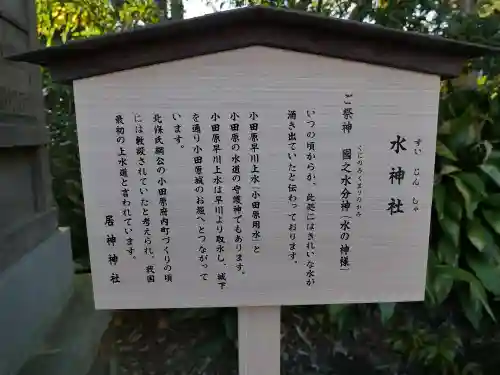 水神社
すいじんしゃ
ご祭神　國之水分神（水の神様）
くにのみくまりのかみ
いつの頃からか、此処にはきれいな水が
湧き出ていたと伝わっております。
小田原早川上水（小田原用水）と
小田原の水道の守護神でもあります。
小田原早川上水は早川より取水し、城下
を通り小田原城のお堀へとつながって
います。
北條氏綱公の小田原府内町づくりの頃
には敷設されていたと考えられ、我国
最初の上水道と言われています。
居神神社